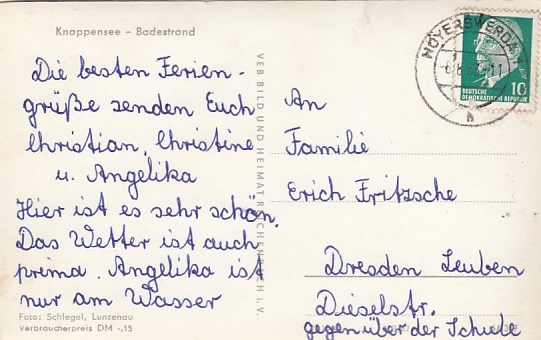 Knappensee - Badestrand
Die besten Ferien-
grüße senden Euch
Christian, Christine
u. Angelika
Hier ist es sehr schön.
Das Wetter ist auch
prima. Angelika ist
nur am Wasser
Foto: Schlegel, Lunzenau
Verbraucherpreis DM -,15
VEB BILD UND HEIMAT REICHENBACH I. V.
HOYERSWERDA
h
10
DEUTSCHE
DEMOKRATISCHE REPUBLIK
An
Familie
Erich Fritzsche
Dresden Leuben
Dieselstr.
gegenüber der Schule